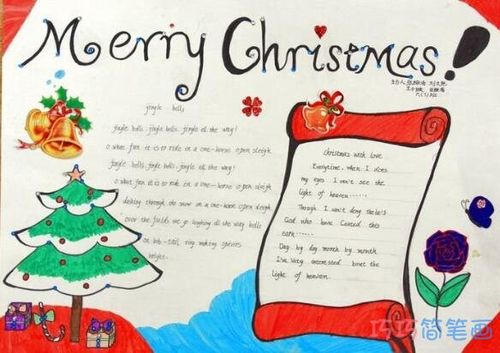 Merry Christmas!
jingle bells
jingle bells, jingle bells, jingle all the way!
O what fun it is to ride in a one-horse open sleigh
jingle bells, jingle bells, jingle all the way!
O what fun it is to ride in a one-horse open sleigh
dashing through the snow in a one-horse open sleigh
over the fields we go laughing all the way bells
on bob-tail ring making spirits
bright.
Christmas with love
Everytime, when I close
my eyes I won't see the
light of heaven
Though I won't deny
God who have
earth
Day by day month by month
I've Very the
light of heaven.
巧巧简笔画